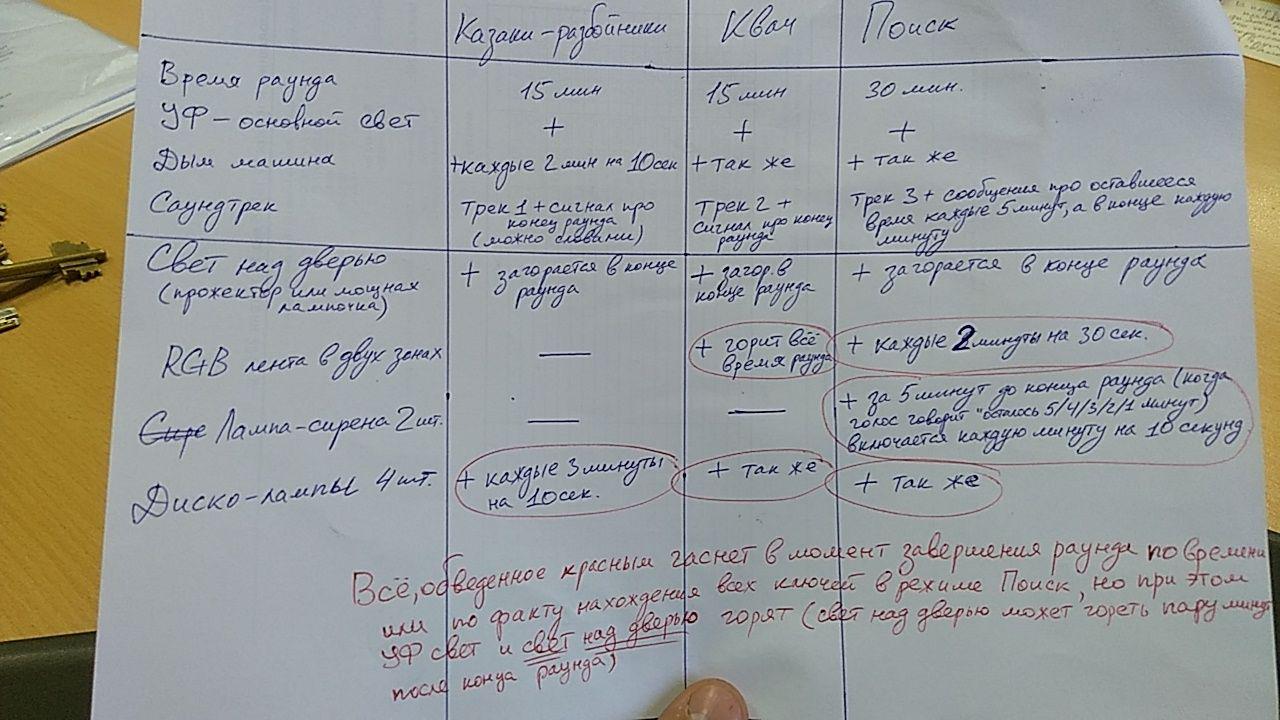 Казаки-разбойники Квач Поиск
Время раунда 15 мин 15 мин 30 мин.
УФ - основной свет + + +
Дым машина + каждые 2 мин на 10 сек + так же + так же
Саундтрек
трек 1 + сигнал про
конец раунда
(можно словами)
трек 2 +
сигнал про конец
раунда
трек 3 + сообщения про оставшееся
время каждые 5 минут, а в конце каждую
минуту
Свет над дверью
(прожектор или мощная
лампочка)
+ загорается в конце
раунда
+ загор. в
конце раунда
+ загорается в конце раунда
RGB лента в двух зонах —
+ горит всё
время раунда
+ каждые 2 минуты на 30 сек.
Сире Лампа-сирена 2 шт. — —
+ за 5 минут до конца раунда (когда
голос говорит "осталось 5/4/3/2/1 минут)
включается каждую минуту на 10 секунд
Диско-лампы 4 шт.
+ каждые 3 минуты
на 10 сек.
+ так же
+ так же
Всё, обведенное красным гаснет в момент завершения раунда по времени
или по факту нахождения всех ключей в режиме Поиск, но при этом
УФ свет и свет над дверью горят (свет над дверью может гореть пару минут
после конца раунда)